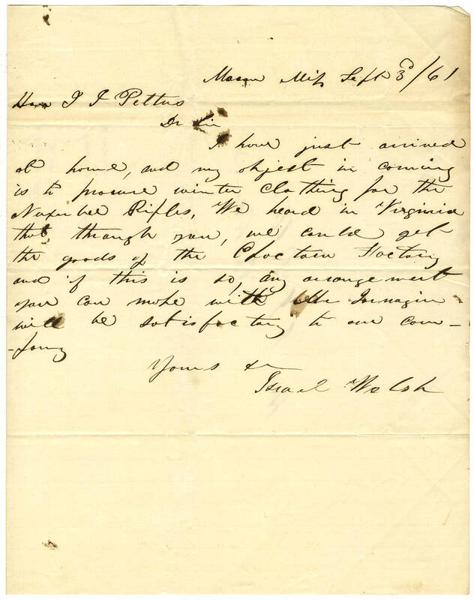 Macon Miss Sept 3d/61
Hon J J Pettus
Dr Sir
I have just arrived
at home, and my object in coming
is to procure winter clothing for the
Noxubee Rifles, We heard in Virginia
that through you, we could get
the goods of the Choctaw Factory
and if this is so any arrangement
you can make with Mr Jarnagin
will be satisfactory to our com-
-pany
Yours &c
Israel Welsh